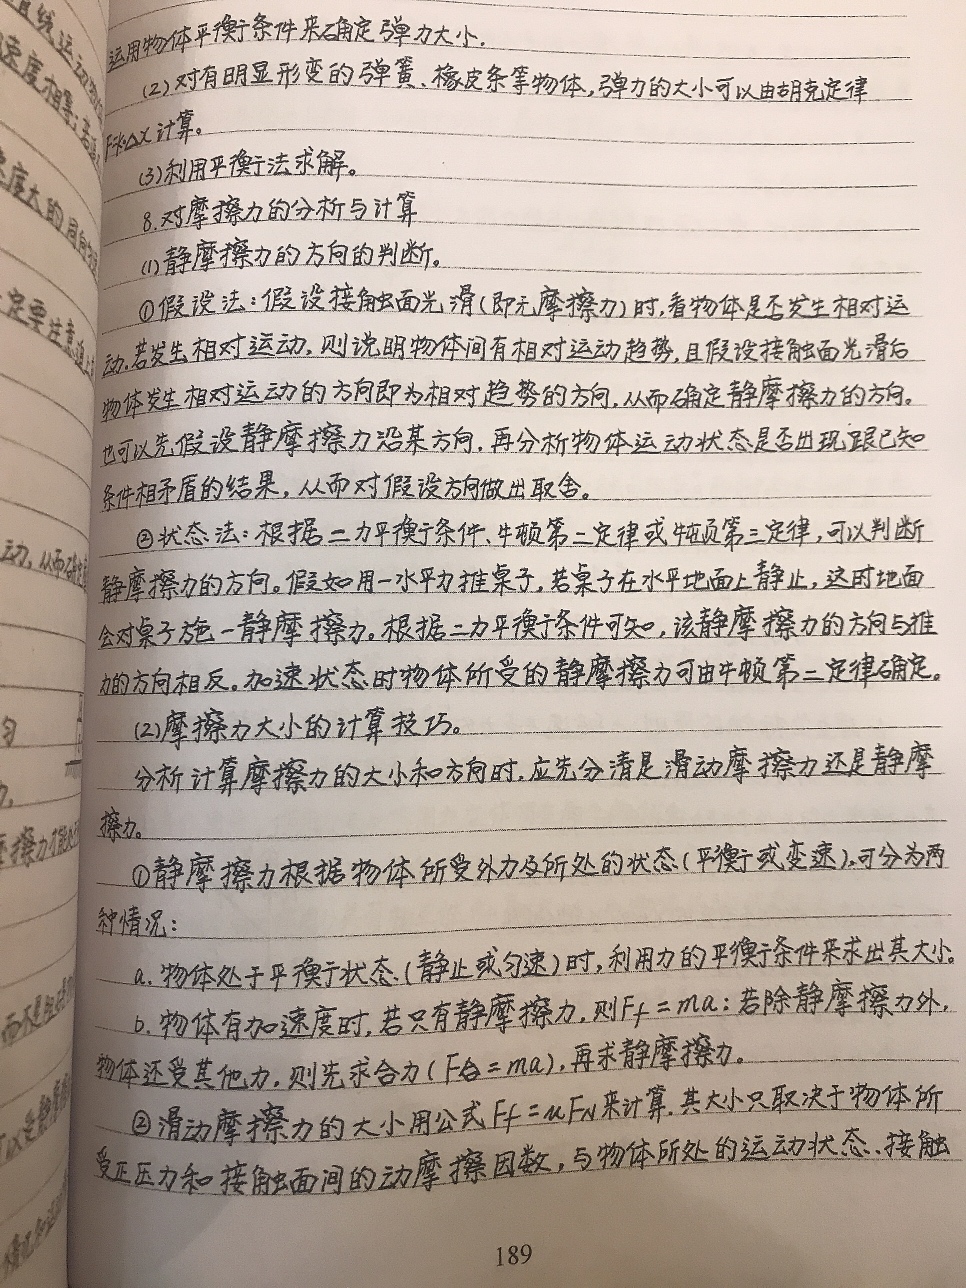 运用物体平衡条件来确定弹力大小.
(2)对有明显形变的弹簧、橡皮条等物体,弹力的大小可以由胡克定律
F=k·△x计算。
(3)利用平衡法求解。
8.对摩擦力的分析与计算
(1)静摩擦力的方向的判断。
①假设法:假设接触面光滑(即无摩擦力)时,看物体是否发生相对运
动.若发生相对运动,则说明物体间有相对运动趋势,且假设接触面光滑后
物体发生相对运动的方向即为相对趋势的方向,从而确定静摩擦力的方向。
也可以先假设静摩擦力沿某方向,再分析物体运动状态是否出现跟已知
条件相矛盾的结果,从而对假设方向做出取舍。
②状态法:根据二力平衡条件、牛顿第二定律或牛顿第三定律,可以判断
静摩擦力的方向。假如用一水平力推桌子,若桌子在水平地面上静止,这时地面
会对桌子施一静摩擦力。根据二力平衡条件可知,该静摩擦力的方向与推
力的方向相反。加速状态时物体所受的静摩擦力可由牛顿第二定律确定。
(2)摩擦力大小的计算技巧。
分析计算摩擦力的大小和方向时,应先分清是滑动摩擦力还是静摩
擦力。
①静摩擦力根据物体所受外力及所处的状态(平衡或变速),可分为两
种情况:
a.物体处于平衡状态(静止或匀速)时,利用力的平衡条件来求出其大小。
b.物体有加速度时,若只有静摩擦力,则Ff=ma;若除静摩擦力外,
物体还受其他力,则先求合力(F合=ma),再求静摩擦力。
②滑动摩擦力的大小用公式Ff=uFN来计算.其大小只取决于物体所
受正压力和接触面间的动摩擦因数,与物体所处的运动状态、接触
189